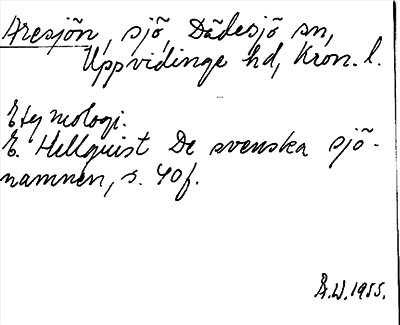 Aresjön, sjö, Dädesjö sn,
Uppvidinge hd, Kron. l.
Etymologi.
E. Hellquist De svenska sjö-
namnen, s. 40f.
Å.W. 1955.